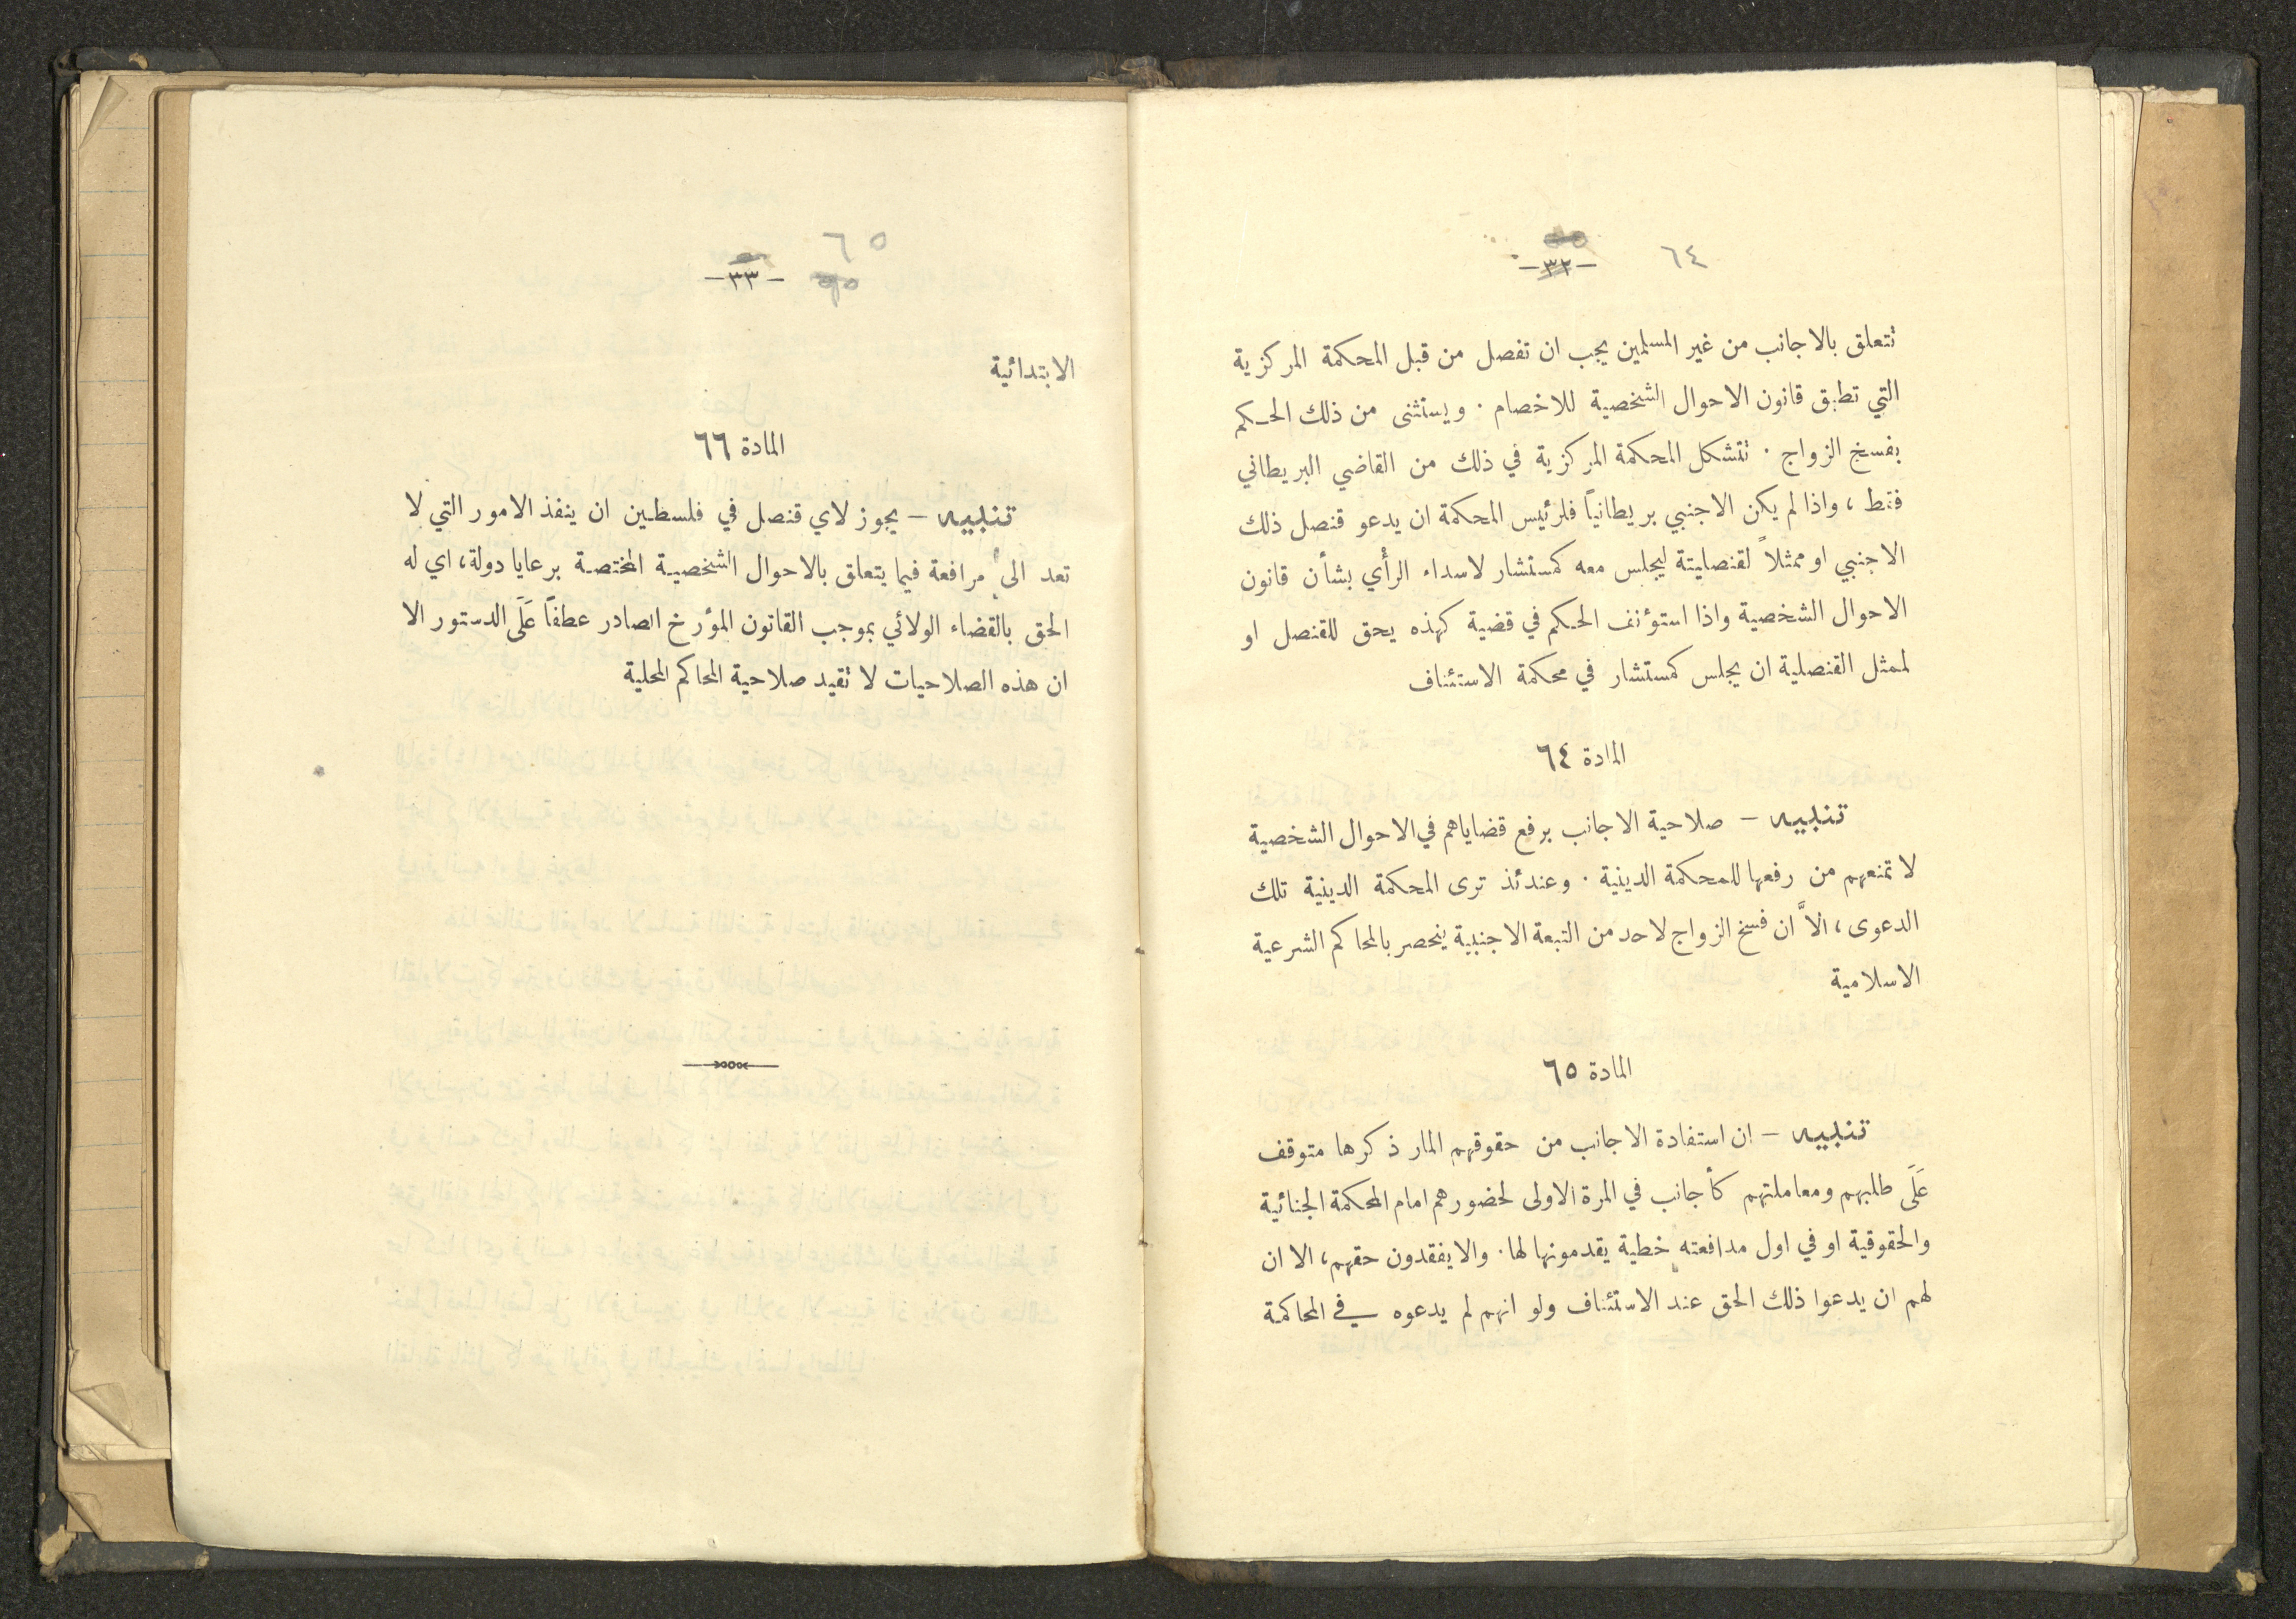 ٦٤
-٣٢-
تتعلق بالاجانب من غير المسلمين يجب ان تفصل من قبل المحكمة المركزية
التي تطبق قانون الاحوال الشخصية للاخصام . ويستثنى من ذلك الحكم
بفسخ الزواج . تتشكل المحكمة المركزية في ذلك من القاضي البريطاني
فقط ، واذا لم يكن الاجنبي بريطانياً فلرئيس المحكمة ان يدعو قنصل ذلك
الاجنبي او ممثلاً لقنصليتة ليجلس معه كمستشار لاسداء الرأي بشأن قانون
الاحوال الشخصية واذا استؤنف الحكم في قضية كهذه يحق للقنصل او
لممثل القنصلية ان يجلس كمستشار في محكمة الاستئناف
المادة ٦٤
تنبيه — صلاحية الاجانب برفع قضاياهم في الاحوال الشخصية
لا تمنعهم من رفعها للمحكمة الدينية . وعندئذ ترى المحكمة الدينية تلك
الدعوى ، الاَّ ان فسخ الزواج لاحد من التبعة الاجنبية ينحصر بالمحاكم الشرعية
الاسلامية
المادة ٦٥
تنبيه — ان استفادة الاجانب من حقوقهم المار ذكرها متوقف
عَلَى طلبهم ومعاملتهم كأجانب في المرة الاولى لحضورهم امام المحكمة الجنائية
والحقوقية او في اول مدافعته خطية يقدمونها لها . والا يفقدون حقهم ، الا ان
لهم ان يدعوا ذلك الحق عند الاستئناف ولو انهم لم يدعوه في المحاكمة
٦٥
-٣٣-
الابتدائية
المادة ٦٦
تنبيه — يجوز لاي قنصل في فلسطين ان ينفذ الامور التي لا
تعد الى مرافعة فيما يتعلق بالاحوال الشخصية المختصة برعايا دولة ، اي له
الحق بالقضاء الولائي بموجب القانون المؤرخ الصادر عطفاً عَلَى الدستور الا
ان هذه الصلاحيات لا تقيد صلاحية المحاكم المحلية